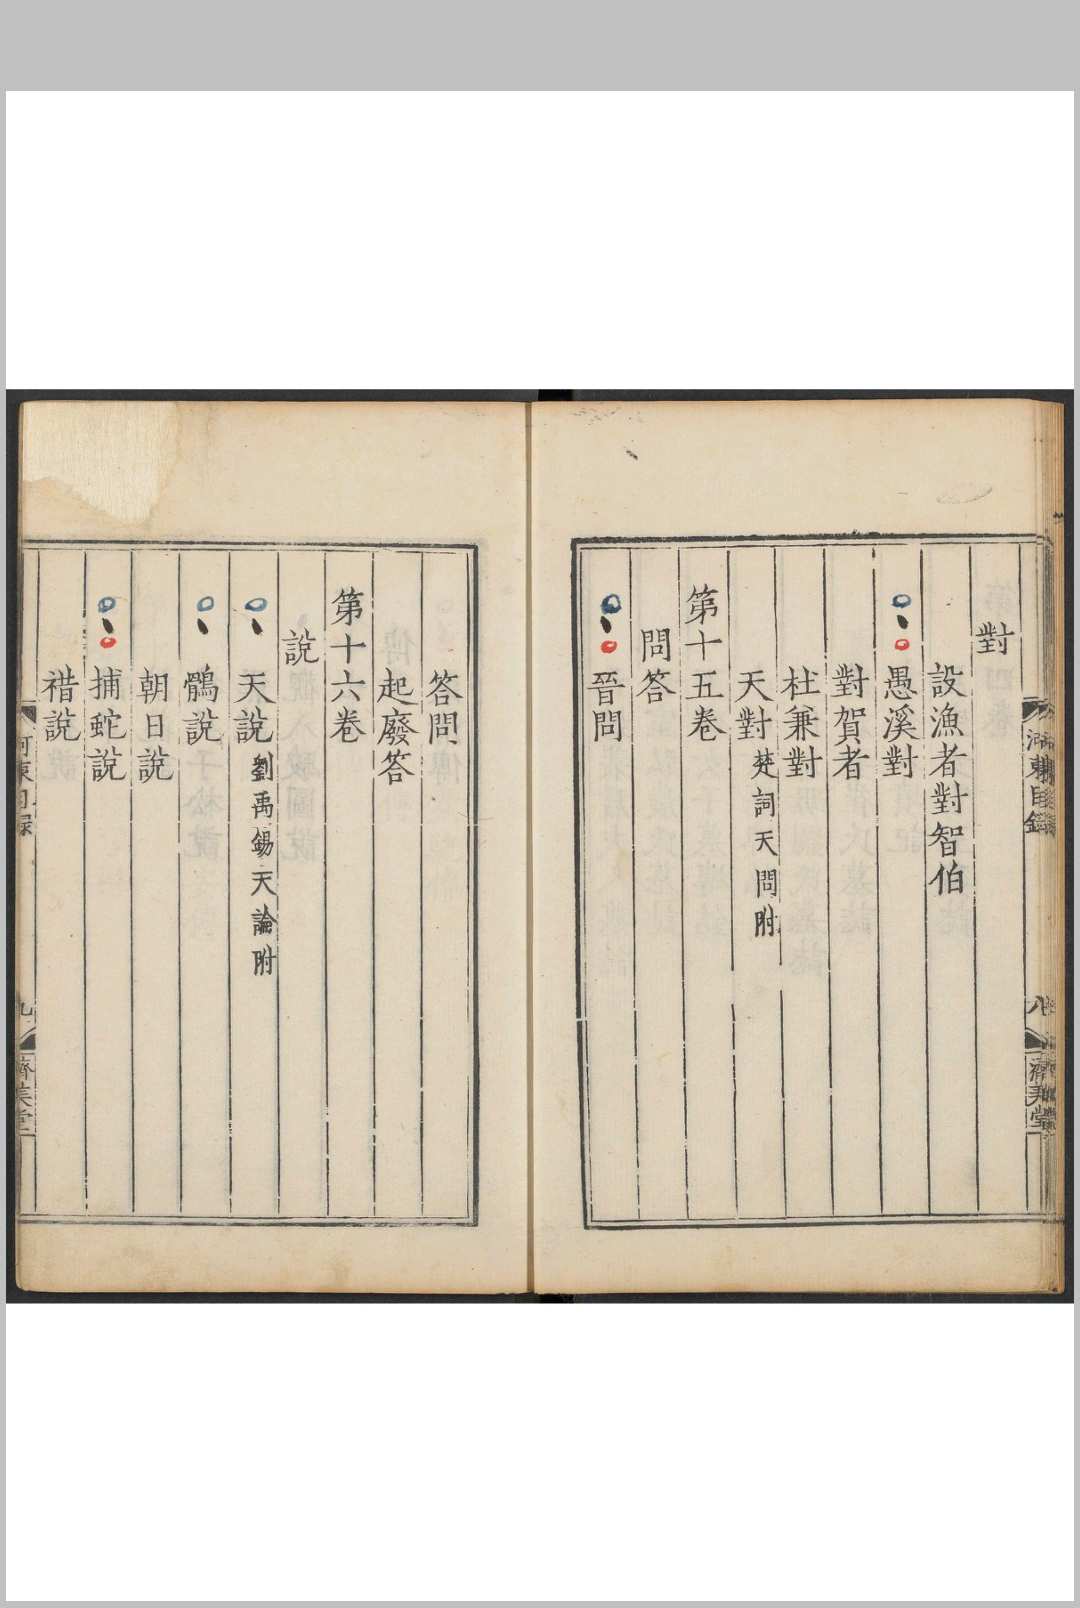 對
設漁者對智伯
愚溪對
對賀者
杜兼對
天對 楚詞天問附
第十五卷
問答
晉問
河東目錄
八
濟美堂
答問
起廢答
第十六卷
說
天說 劉禹錫天論附
鶻說
朝日說
捕蛇說
䄍說
河東目錄
九
濟美堂